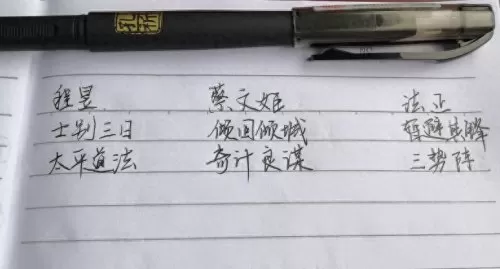 孔祈
程昱 蔡文姬 法正
士别三日 倾国倾城 暂避其锋
太平道法 奇计良谋 三势阵